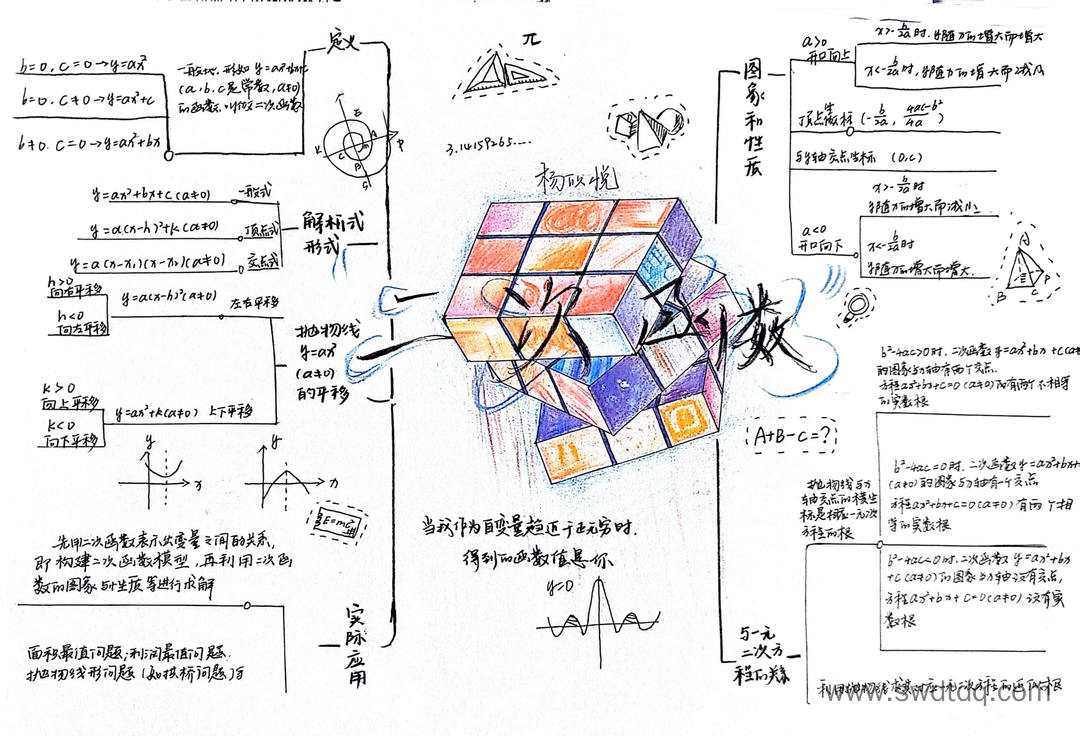 定义
b=0, c=0→y=ax²
b=0, c≠0→y=ax²+c
b≠0. c=0→y=ax²+bx
一般地，形如 y=ax²+bx+c
(a, b, c是常数, a≠0)
的函数，叫做二次函数
解析式
形式
y=ax²+bx+c (a≠0) 一般式
y=a(x-h)²+k (a≠0) 顶点式
y=a(x-x₁)(x-x₂)(a≠0) 交点式
抛物线
y=ax²
(a≠0)
的平移
h>0
向右平移
h<0
向左平移
y=a(x-h)²(a≠0) 左右平移
k>0
向上平移
k<0
向下平移
y=ax²+k(a≠0) 上下平移
y
x
y
x
E=mc²
先用二次函数表示出变量之间的关系，
即构建二次函数模型，再利用二次函
数的图象与性质等进行求解
实际应用
面积最值问题；利润最值问题.
抛物线形问题（如拱桥问题）
π
3.14159265....
杨
二次函数
A+B-C=?
当我作为自变量趋近于正无穷时.
得到的函数值是你
y=0
图象和性质
a>0
开口向上
x>-b/2a时. y随x的增大而增大
x<-b/2a时, y随x的增大而减小
顶点坐标 (-b/2a, 4ac-b²/4a)
与y轴交点坐标 (0,c)
a<0
开口向下
x>-b/2a时
y随x的增大而减小
x<-b/2a时
y随x的增大而增大.
A
B
C
P
与一元
二次方
程的关系
抛物线与x
轴交点的横坐
标是相应一元二次
方程的根
b²-4ac>0时, 二次函数y=ax²+bx+c(a≠
的图象与x轴有两个交点.
方程ax²+bx+c=0 (a≠0)有两个不相等
的实数根
b²-4ac=0时. 二次函数y=ax²+bx+
(a≠0)的图象与x轴有一个交点
方程ax²+bx+c=0(a≠0)有两个相
等的实数根
b²-4ac<0时. 二次函数 y=ax²+bx
+c(a≠0)的图象与x轴没有交点,
方程ax²+bx+c=0(a≠0)没有实
数根
www.swdtdq.com